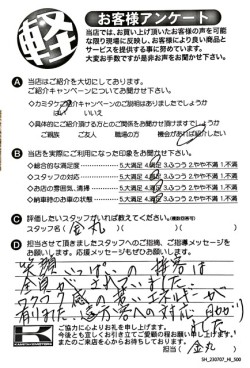 軽
お客様アンケート
当店では、お買い上げ頂いたお客様の声を可能
な限り現場に反映し、お客様により良い商品と
サービスを提供する事に努めています。
大変お手数ですが是非お声をお聞かせ下さい。
A 当店はご紹介を大切にしております。
ご紹介キャンペーンについてお聞かせ下さい。
・カミタケご紹介キャンペーンのご説明はありましたでしょうか
はい いいえ
・具体的にご紹介頂ける方とのご関係をお聞かせ頂けますでしょうか
ご親族 ご友人 職場の方 機会があれば紹介したい
B 当店を実際にご利用になった印象をお聞かせ下さい。
◇総合的な満足度 5.大満足 4.満足 3.ふつう 2.やや不満 1.不満
◇スタッフの対応 5.大満足 4.満足 3.ふつう 2.やや不満 1.不満
◇お店の雰囲気、清掃 5.大満足 4.満足 3.ふつう 2.やや不満 1.不満
◇納車時のお車の状態 5.大満足 4.満足 3.ふつう 2.やや不満 1.不満
C 評価したいスタッフがいれば教えてください。(複数回答可)
スタッフ名( 金丸 )( )( )
D 担当させて頂きましたスタッフへのご指摘、ご指導メッセージを
お願いします。応援メッセージもぜひお願いします。
笑顔いっぱいの接客は
ワクワク感の
遠方客への対応
ました
ご協力に心よりお礼を申し上げます。
今後とも宜しくお引き立てご愛顧の程お願い申し上げます。
またのご来店を心からお待ちしております。
担当( 金丸 )
SH_230707_HI_500